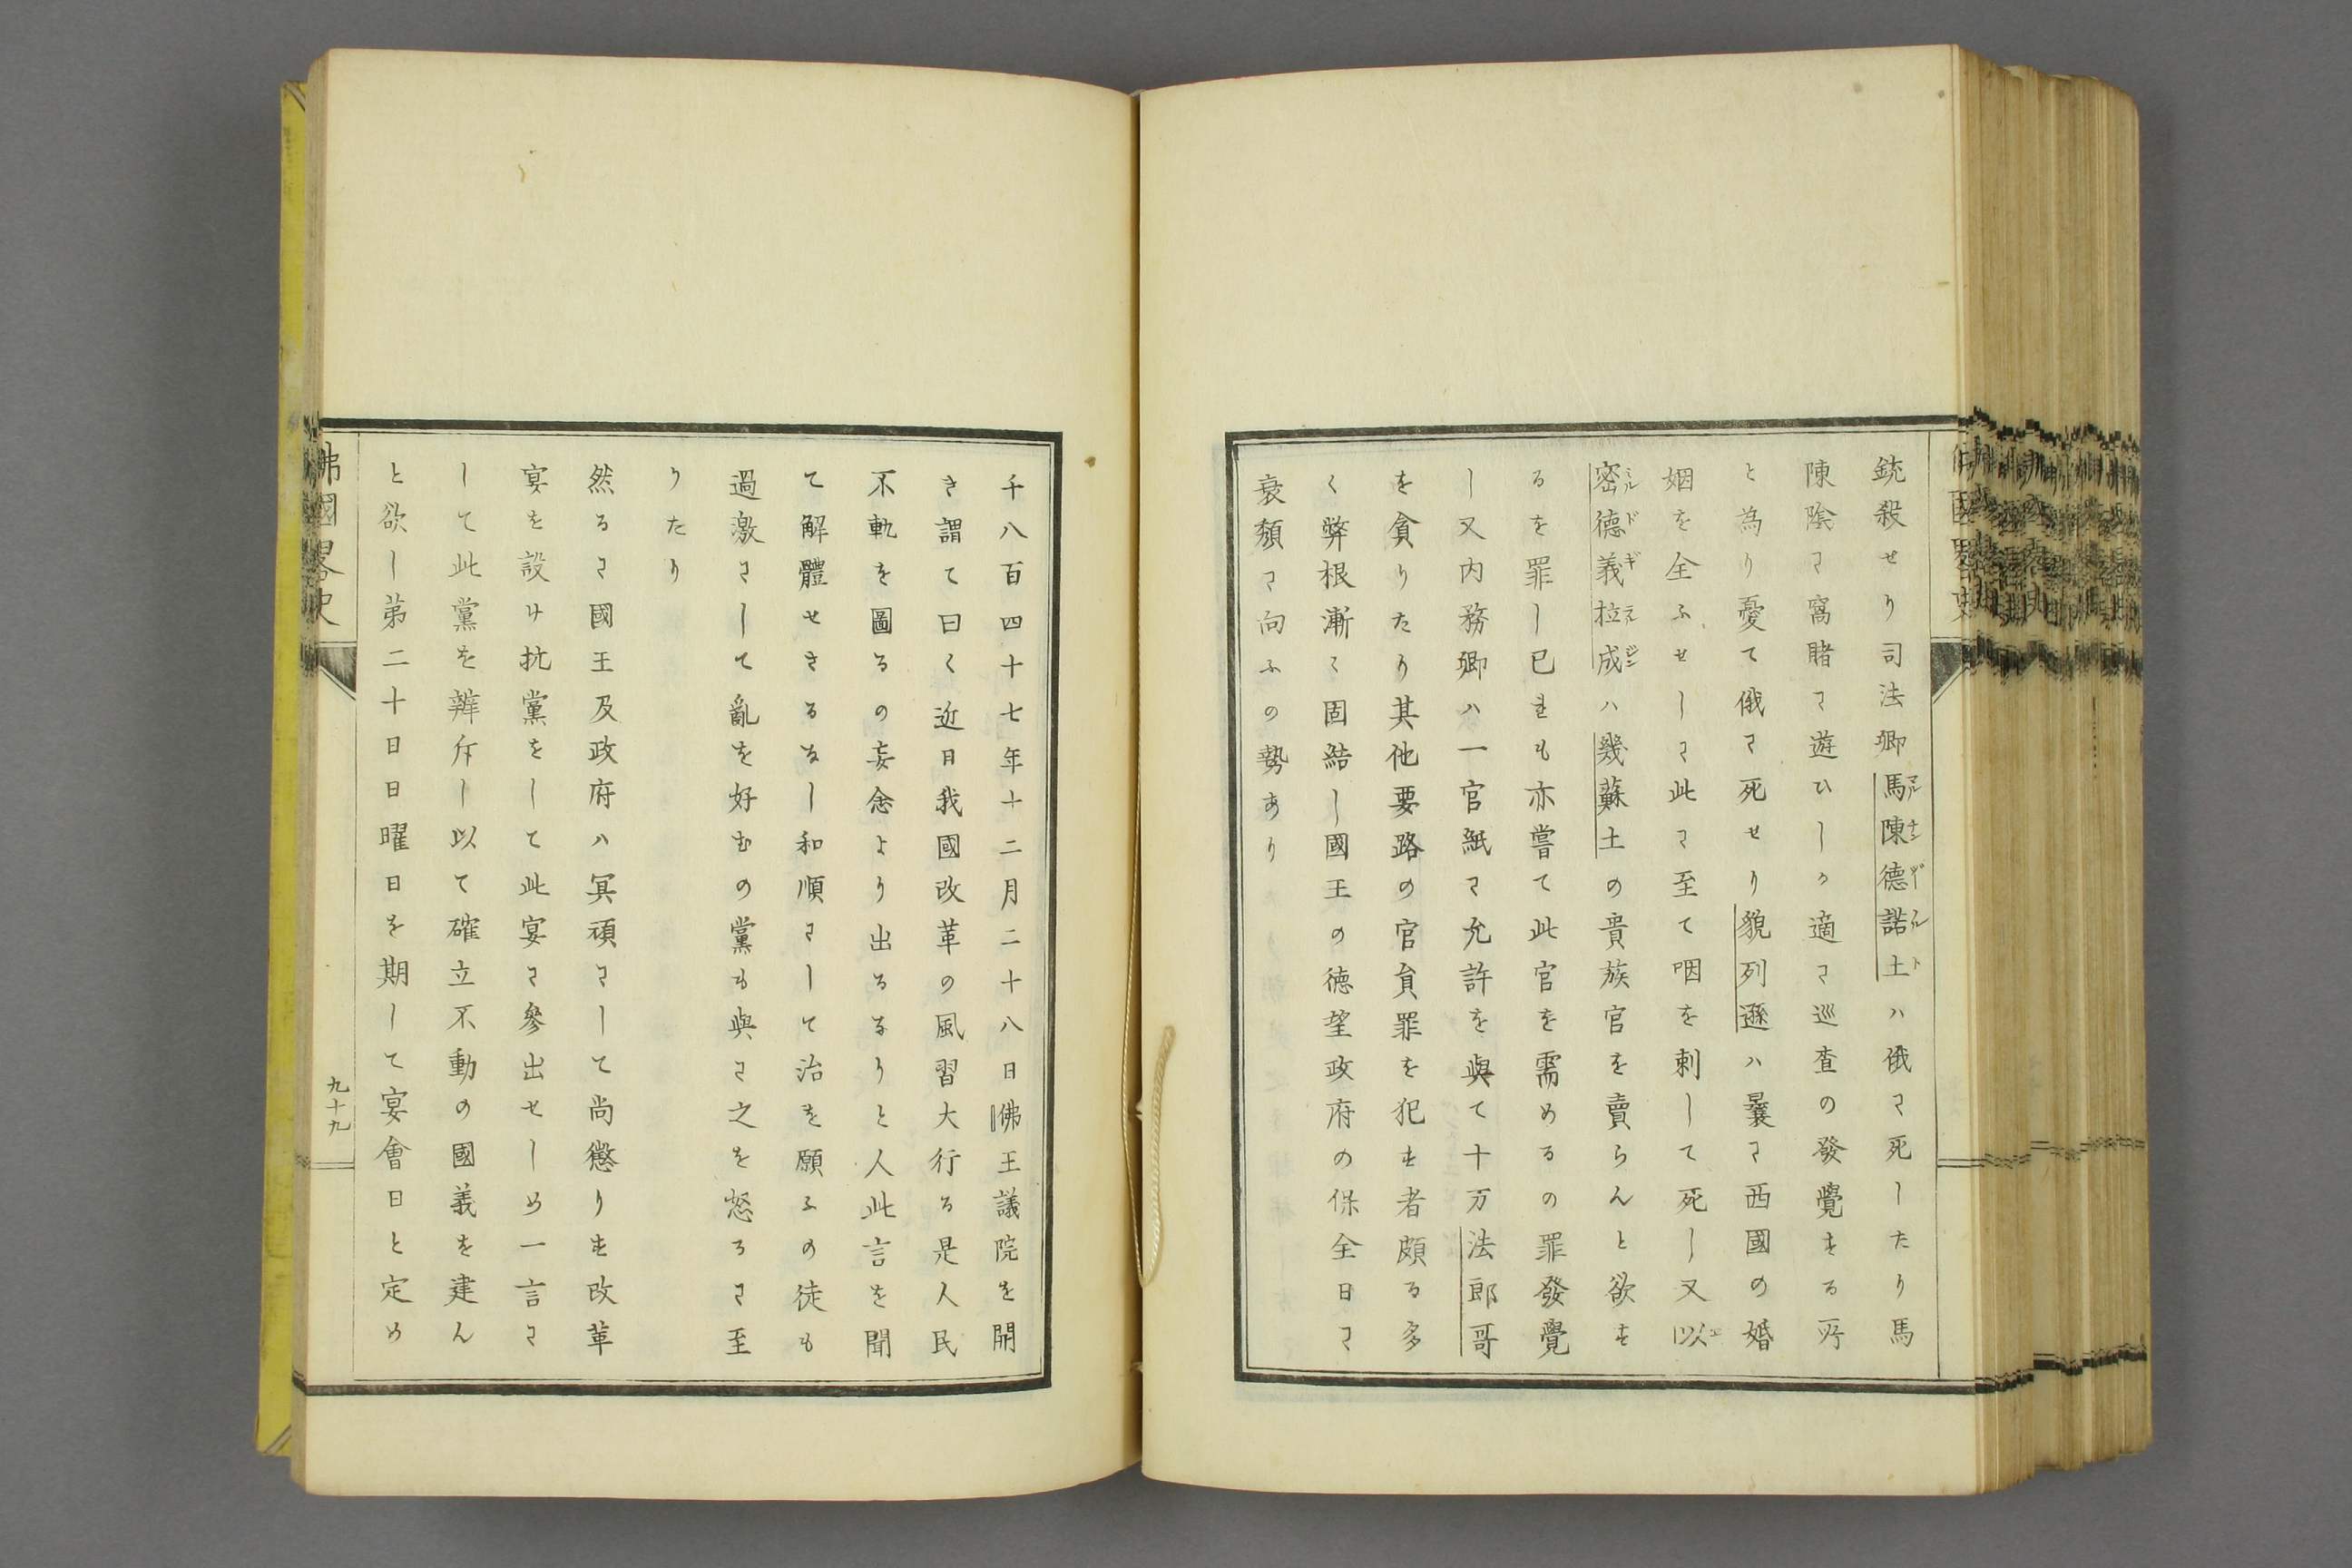 銃殺せり司法卿馬陳德諾土ハ俄に死したり馬
陳陰に窩賭に遊ひしか適に巡査の發覺する所
と為り憂て俄に死せり貌列遜ハ曩に西國の婚
姻を全ふせしに此に至て咽を刺して死し又以
密德義拉成ハ幾蘇土の貴族官を賣らんと欲す
るを罪し已れも亦嘗て此官を需めるの罪發覺
し又内務卿ハ一官紙に允許を與て十万法郎哥
を貪りたり其他要路の官員罪を犯す者頗る多
く弊根漸く固結し國王の徳望政府の保全日に
衰頽に向ふの勢あり
千八百四十七年十二月二十八日佛王議院を開
き謂て曰く近日我國改革の風習大行る是人民
不軌を圖るの妄念より出るなりと人此言を聞
て解體せさるなし和順にして治を願ふの徒も
過激にして亂を好むの黨も與に之を怒るに至
りたり
然るに國王及政府ハ冥頑にして尚懲りす改革
宴を設け抗黨をして此宴に參出せしめ一言に
して此黨を辨斥し以て確立不動の國義を建ん
と欲し第二十日日曜日を期して宴會日と定め
佛國畧史
九十九